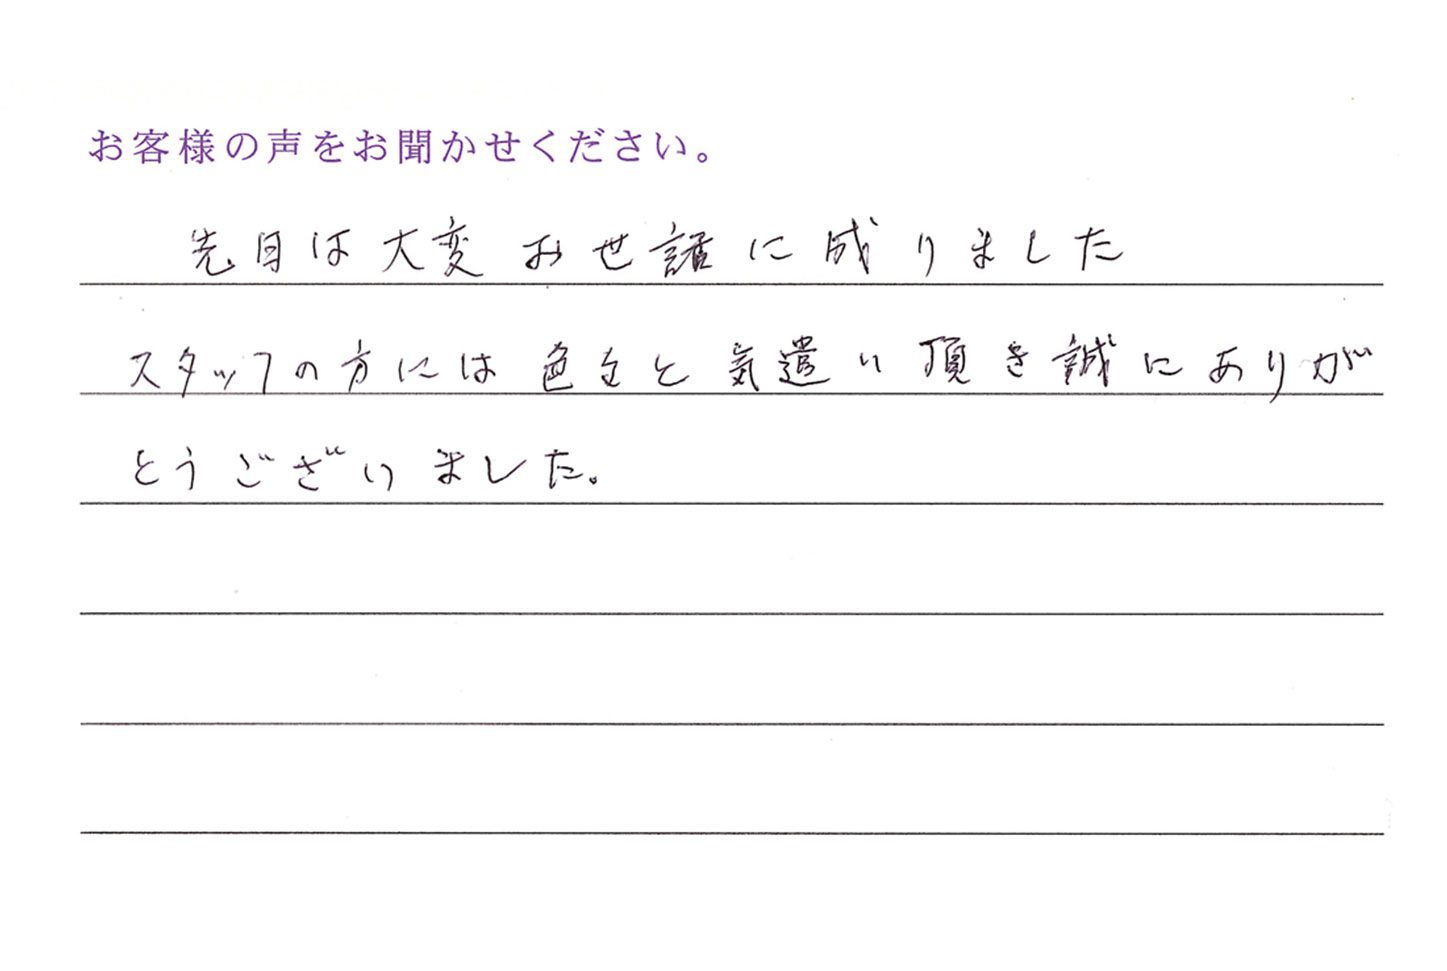 お客様の声をお聞かせください。
先日は大変お世話に成りました
スタッフの方には色々と気遣い頂き誠にありが
とうございました。